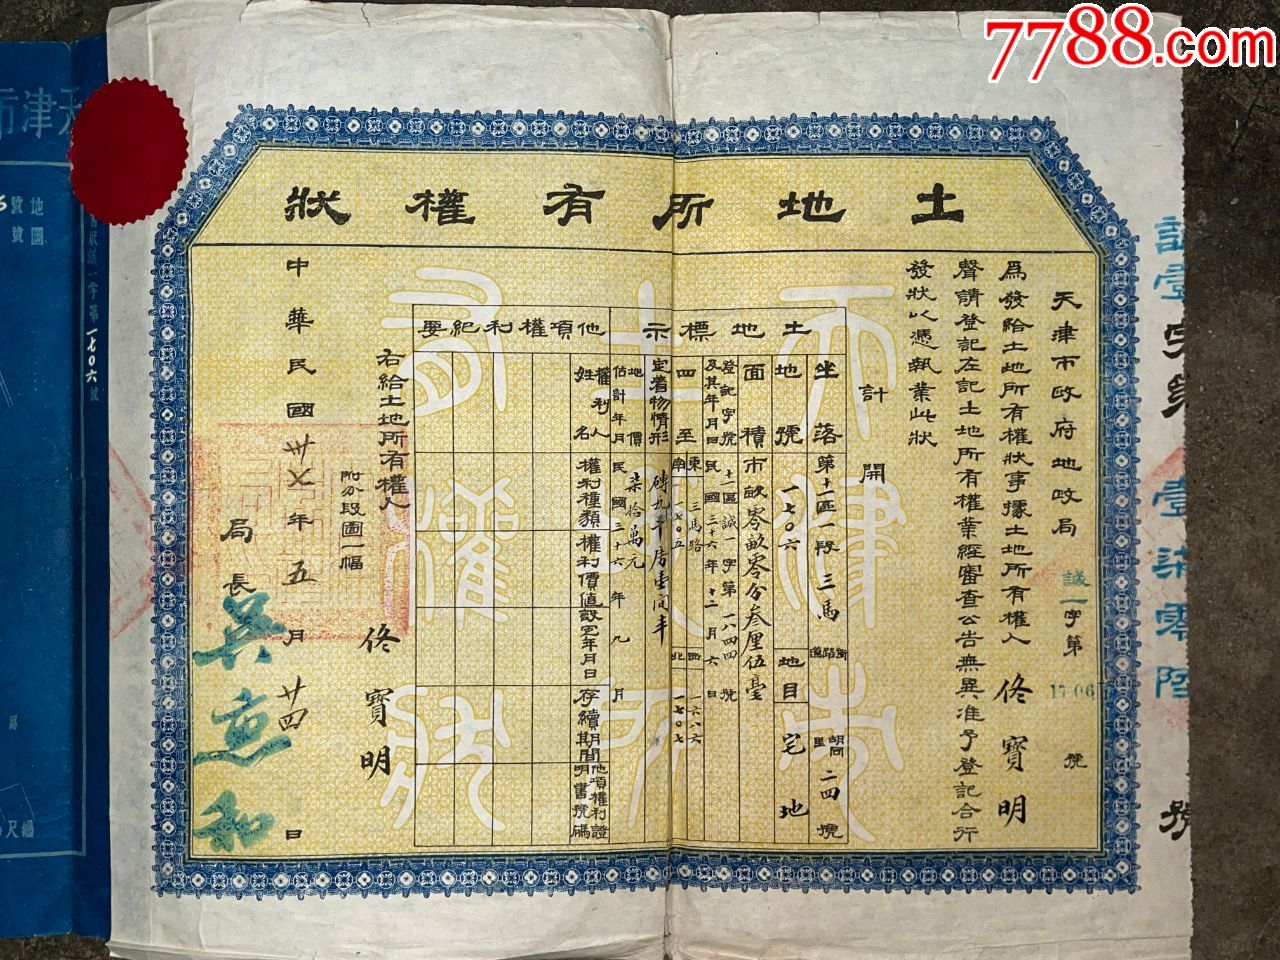 7788.com
土地所有權狀
天津市政府地政局 誠一字第1706號
爲發給土地所有權狀事據土地所有權人佟寶明
聲請登記左記土地所有權業經審查公告無異准予登記合行
發狀以憑執業此狀
計開
土地標示
坐落 第十一區一段三馬街路道胡同里二四號
地號 一七〇六 地目 宅地
面積 市畝零畝零分叁厘伍毫
登記字號及其年月日 十一區誠一字第一六四四號民國三十六年十二月六日
四至 東 三馬路 西 一六八六 南 一七〇五 北 一七〇七
定着物情形 磚瓦平房壹间半
地價 柒拾萬元
估計年月 民國三十六年九月
他項權利紀要
權利人姓名 權利種類 權利價值 設定年月日 存續期間 他項權利證明書號碼
右給土地所有權人 佟寶明
附分段圖一幅
中華民國卅七年五月廿四日
局長
誠壹字第壹柒零陸號
天津市
地圖
號號
狀誠一字第一七〇六號
縮尺